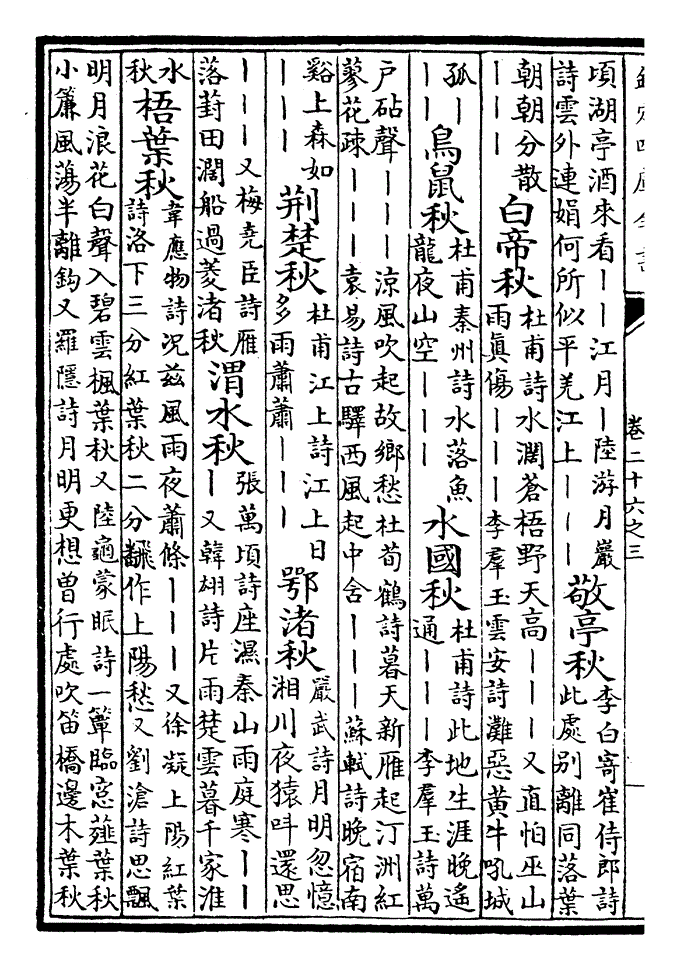 卷二十六之三
頃湖亭酒來看——江月—陸游月巖
詩雲外連娟何所似平羌江上———
敬亭秋
李白寄崔侍郎詩
此處別離同落葉
朝朝分散
———
白帝秋
杜甫詩水濶蒼梧野天高———又直怕巫山
雨眞傷———李羣玉雲安詩灘惡黃牛吼城
孤—
——
鳥鼠秋
杜甫秦州詩水落魚
龍夜山空———
水國秋
杜甫詩此地生涯晚遙
通———李羣玉詩萬
戶砧聲———涼風吹起故鄉愁杜荀鶴詩暮天新雁起汀洲紅
蓼花疎———袁易詩古驛西風起中舍———蘇軾詩晚宿南
谿上森如
———
荆楚秋
杜甫江上詩江上日
多雨蕭蕭———
鄂渚秋
嚴武詩月明忽憶
湘川夜猿叫還思
———又梅堯臣詩雁
落葑田濶船過菱渚秋
渭水秋
張萬頃詩座濕秦山雨庭寒——
—又韓翃詩片雨楚雲暮千家淮
水
秋
梧葉秋
韋應物詩况兹風雨夜蕭條———又徐凝上陽紅葉
詩洛下三分紅葉秋二分飜作上陽愁又劉滄詩思飄
明月浪花白聲入碧雲楓葉秋又陸龜蒙眠詩一簟臨窓薤葉秋
小簾風蕩半離鈎又羅隱詩月明更想曾行處吹笛橋邊木葉秋